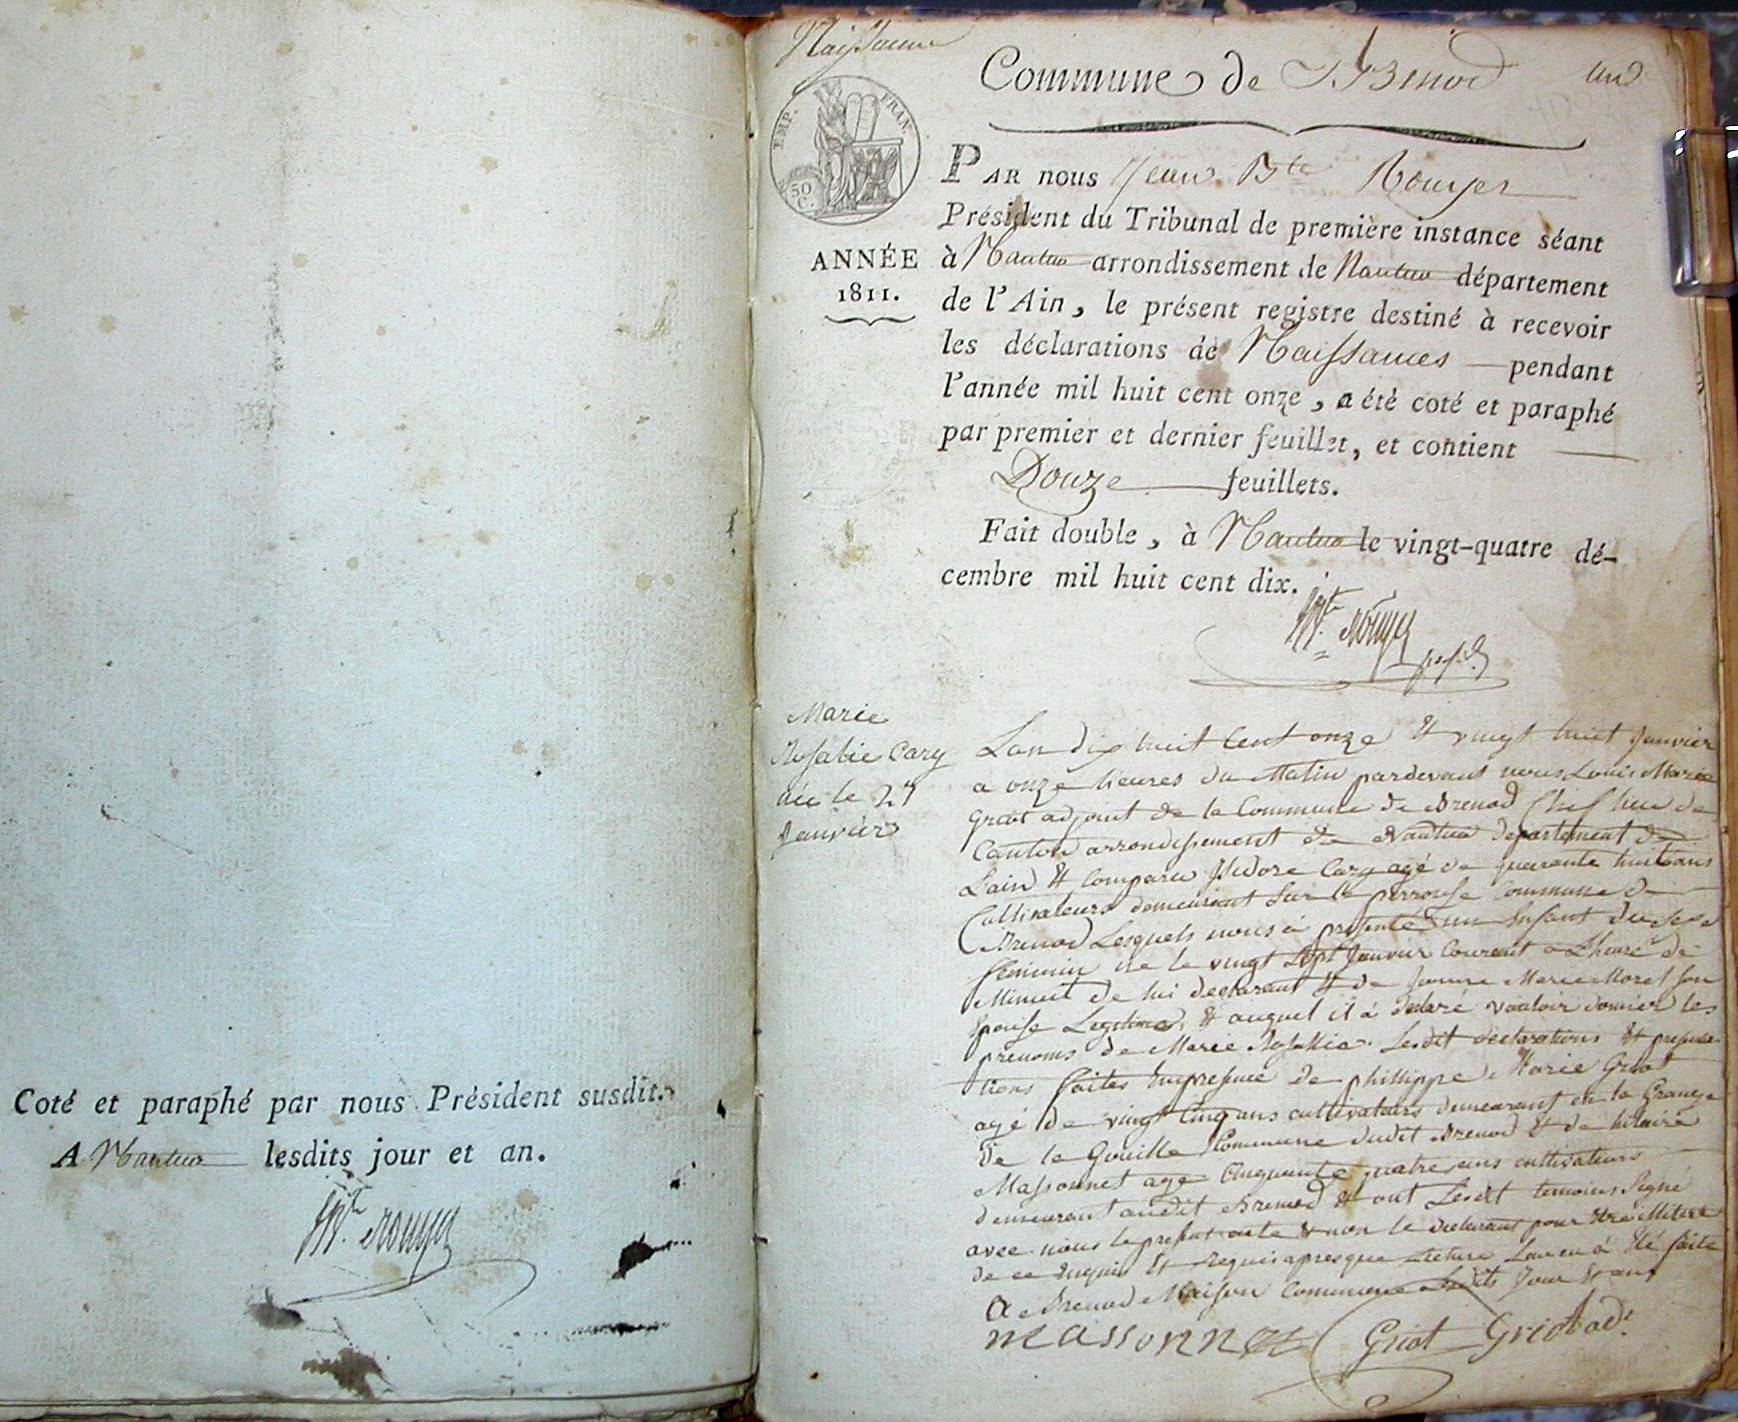 Coté et paraphé par nous Président susdit.
A Nantua lesdits jour et an.
Jn Bte Rouyer
Naissances
Commune de Brenod
un
EMP. FRAN.
50 C.
ANNÉE
1811.
PAR nous Jean Bte Rouyer
Président du Tribunal de première instance séant
à Nantua arrondissement de Nantua département
de l'Ain, le présent registre destiné à recevoir
les déclarations de Naissances pendant
l'année mil huit cent onze, a été coté et paraphé
par premier et dernier feuillet, et contient
Douze feuillets.
Fait double, à Nantua le vingt-quatre dé-
cembre mil huit cent dix.
Bte Rouyer
Marie
Rosalie Cary
née le 27
Janvier
Lan dix huit Cent onze & vingt huit Janvier
a onze heures du Matin pardevant nous Louis Marie
Griot adjoint de la Commune de Brenod Chef lieu de
Canton arrondissement de Nantua departement de
Lain & comparu Isidore Cary agé de quarante huit ans
Cultivateurs demeurant Sur le perrouse Commune de
Brenod Lesquels nous à présenté un Enfant du Sexe
féminin né le vingt Sept Janvier Courant a Lheure de
Minuit de lui declarant & de Jeanne Marie Morel Son
Epouse Legitime, & auquel il à declaré vouloir donner les
prenoms de Marie Rosallie. Lesdit declarations & presenta-
tions faites Enpresence de phillippe Marie Griot
agé de vingt Cinq ans cultivateurs demeurant en la Grange
de le Gouille Commune dudit Brenod & de hilaire
Massonnet age Cinquante quatre ans cultivateurs
demeurant audit Brenod & ont Lesdit temoins Signé
avec nous le present acte & non le declarant pour Etre illitere
de ce Enquis & Requis apres que Lecture Leur en à Eté faite
A Brenod Maison Commune Lesdits Jour & an
massonnet Griot Griot adt